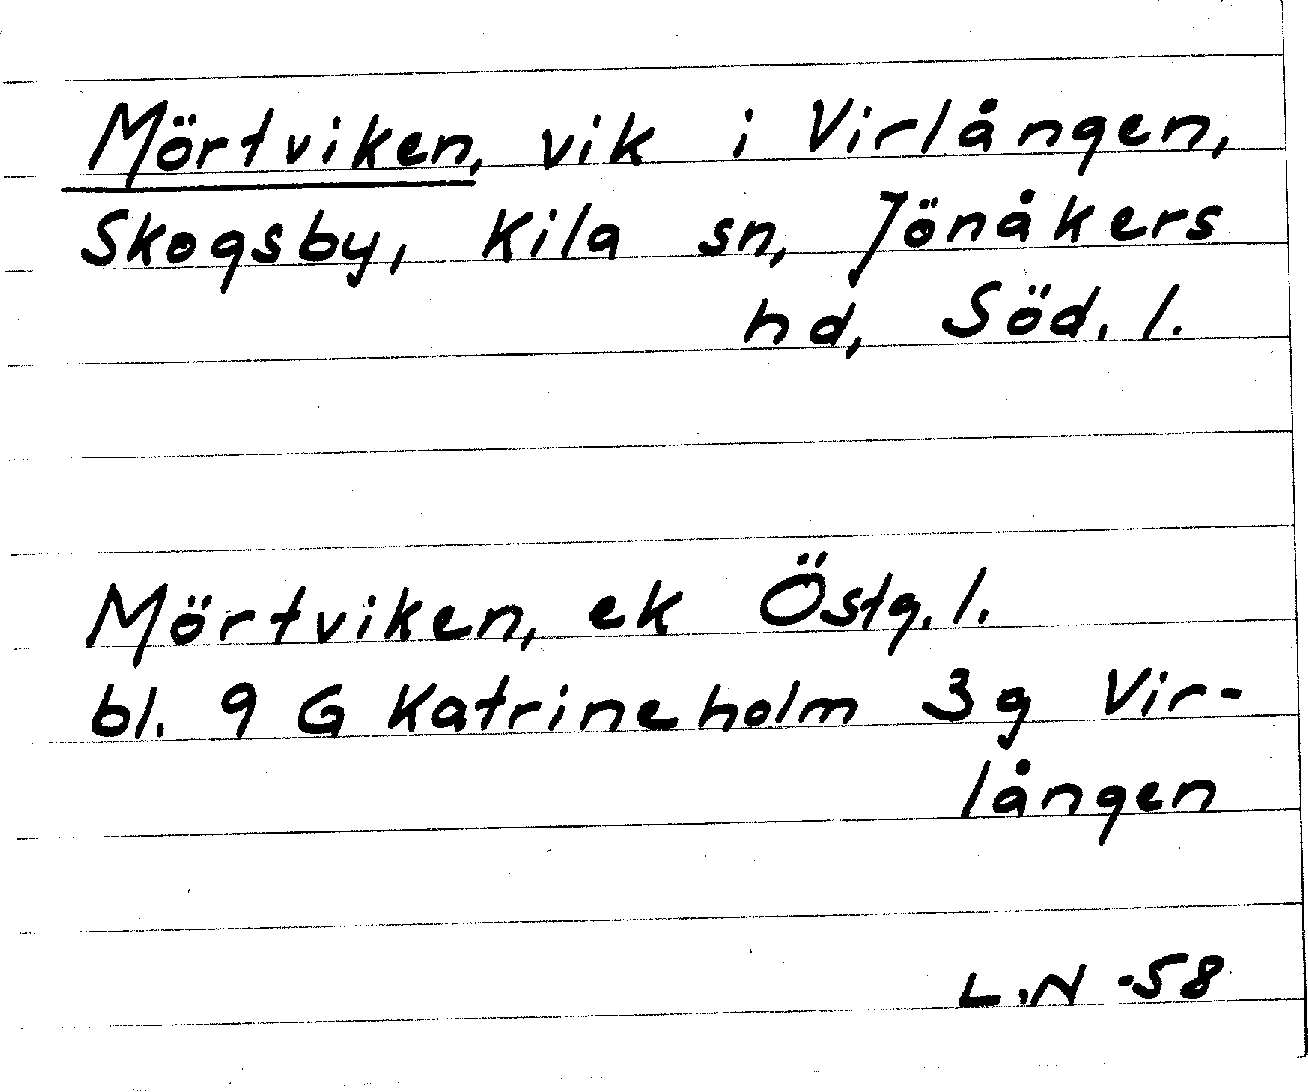 Mörtviken, vik i Virlången,
Skogsby, Kila sn, Jönåkers
hd, Söd. l.
Mörtviken, ek Östg. l.
bl. 9 G Katrineholm 3g Vir-
lången
L.N -58